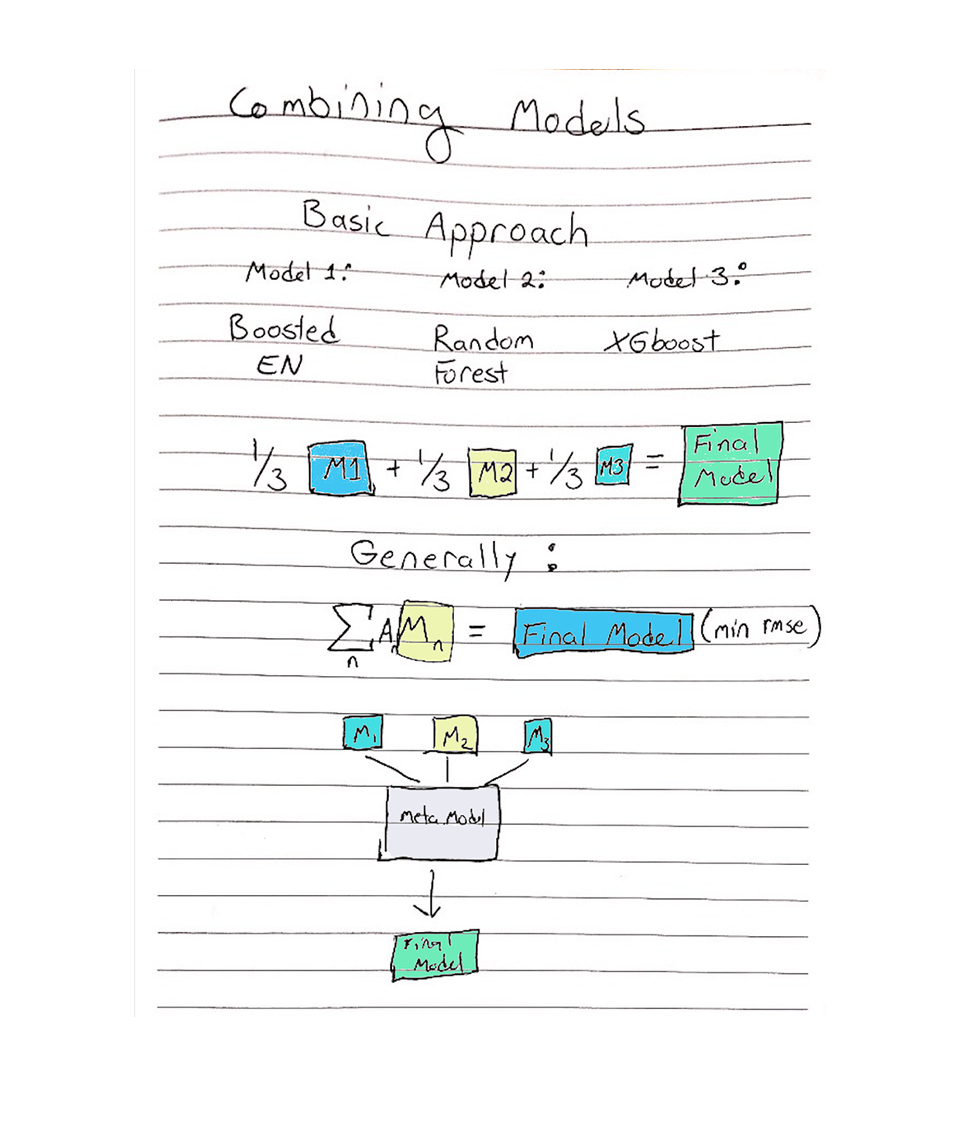 Combining Models
Basic Approach
Model 1: Model 2: Model 3:
Boosted EN Random Forest XGboost
1/3 M1 + 1/3 M2 + 1/3 M3 = Final Model
Generally :
∑ n Aₙ Mₙ = Final Model (min rmse)
M₁ M₂ M₃
Meta Model
Final
Model